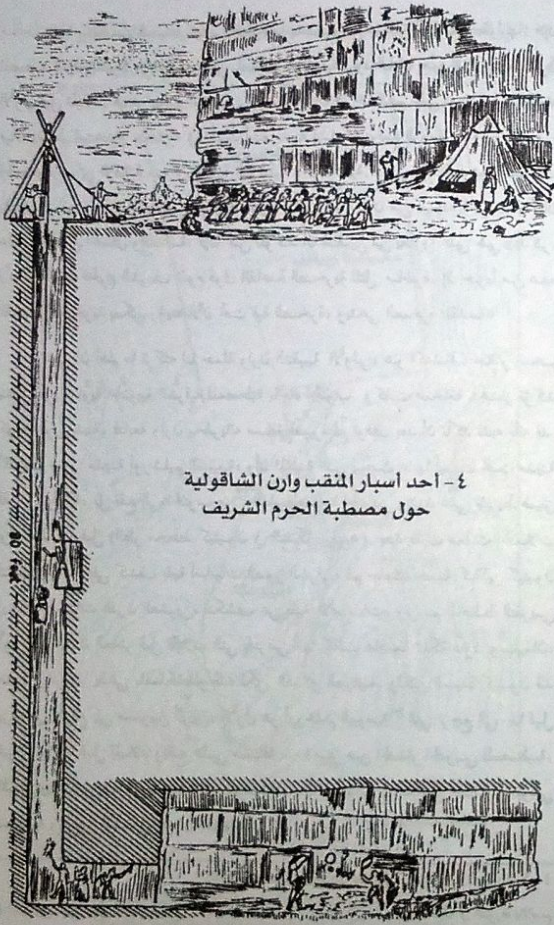 ٤- أحد أسبار المنقب وارن الشاقولية
حول مصطبة الحرم الشريف
80 Feet